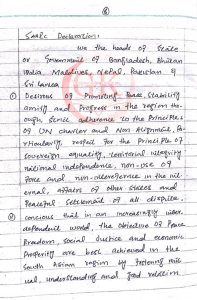 Saarc Declaration:
we the heads of State
or Government of Bangladesh, Bhutan
India, Maldives, Nepal, Pakistan &
Sri Lanka
① Desirous of Promoting Peace, Stability
amity and Progress in the region thr-
ough, strict adherence to the Principle
of UN charter and Non Alignment, Pa-
respect for the Principle of
Sovereign equality, territorial integrity
national independence, non-use of
force and non-interference in the int
ernal, affairs of other States and
Peaceful settlement of all dispute.
② concious that in an increasingly inter
dependent world, the objective of Peace
freedom, Social Justice and economic
Prosperity are best achieved in the
South Asian region by fostering mut
ual understanding and good relation